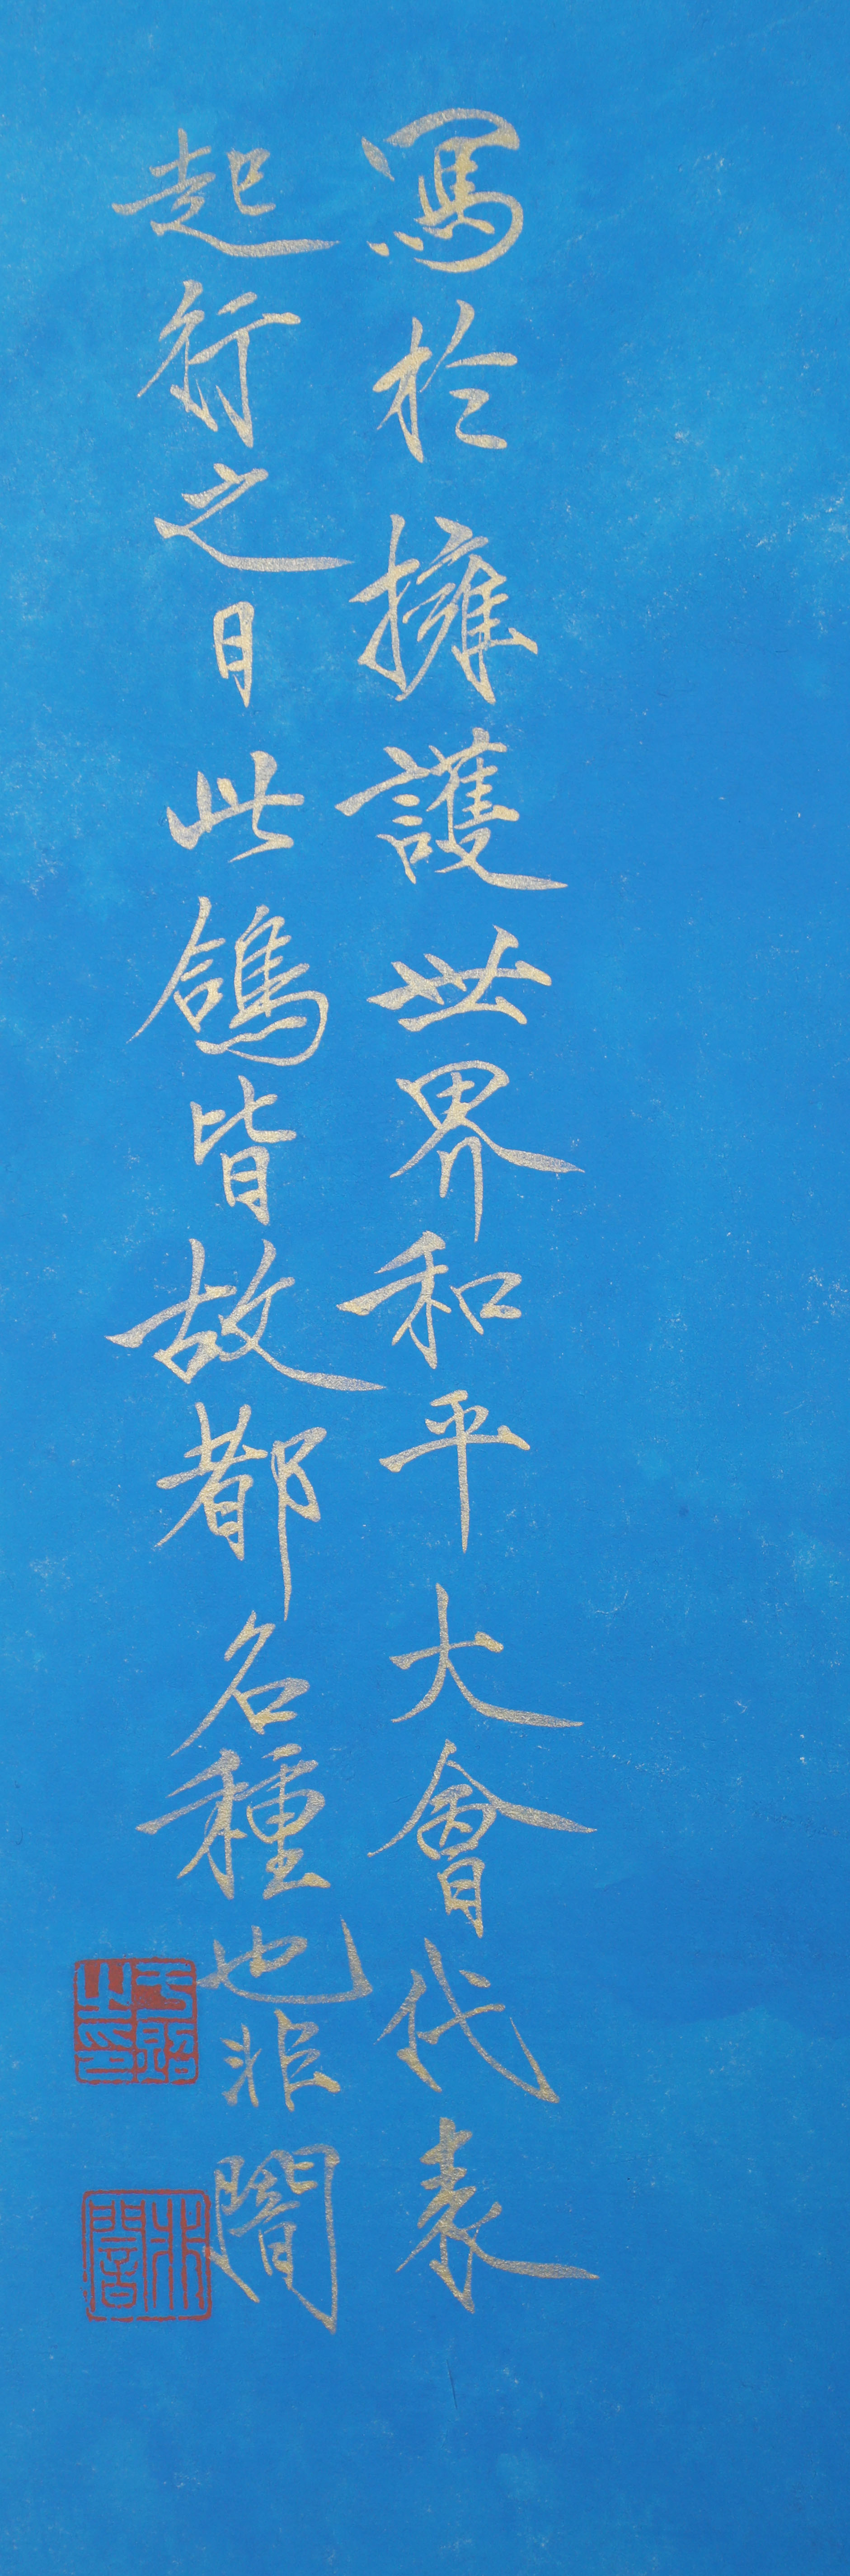 寫於擁護世界和平大會代表
起行之日此鴿皆故都名種也非闇
于照之印
非闇